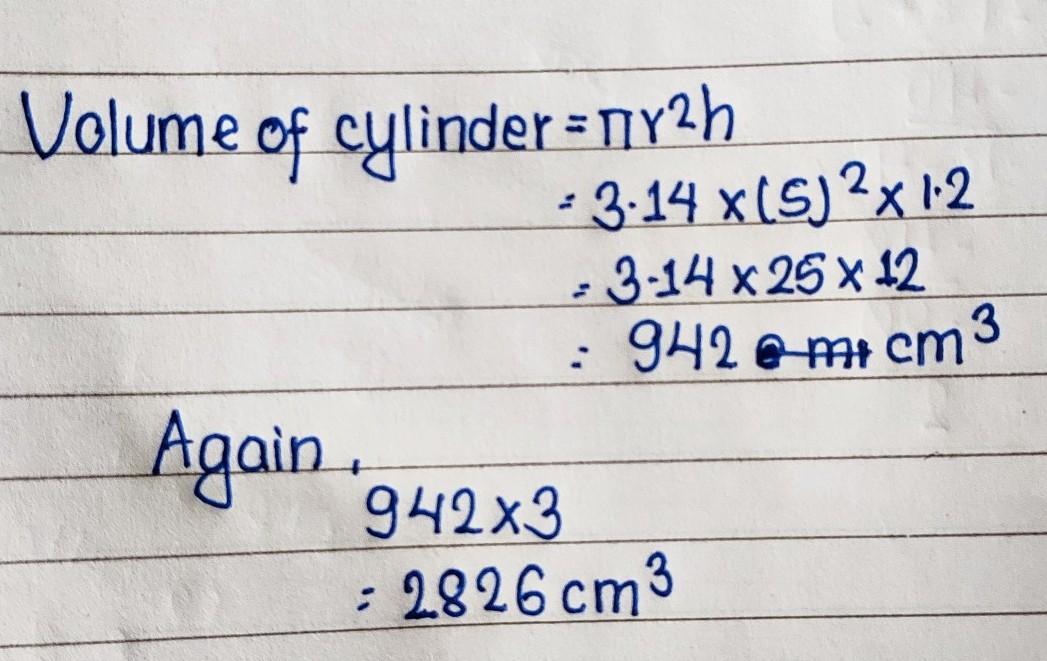 Volume of cylinder = πr2h
= 3.14 x (5)² x 1.2
= 3.14 x 25 x 12
= 942 cm³
Again,
942x3
= 2826 cm³